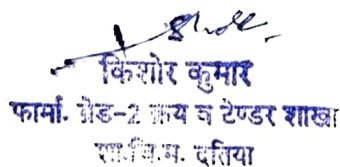 किशोर कुमार
फार्मा. ग्रेड-2 क्रय व टेण्डर शाखा
शा.चि.म. दतिया